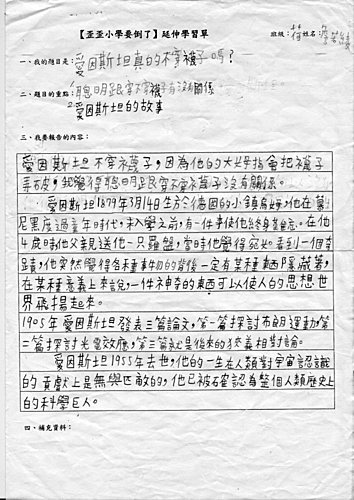 【歪歪小學要倒了】延伸學習單
班級： 姓名：
一、我的題目是：愛因斯坦真的不穿襪子嗎？
二、題目的重點：1.聰明跟穿不穿襪子有沒有關係。
2.愛因斯坦的故事
三、我要報告的內容：
愛因斯坦不穿襪子，因為他的大拇指會把襪子
弄破，我覺得聰明跟穿不穿襪子沒有關係。
愛因斯坦1879年3月14日生於德國的小鎮烏姆，他在慕
尼黑度過童年時代，未入學之前，有一件事使他終身難忘。在他
4歲時他父親送他一只羅盤，當時他覺得宛如看到一個奇
蹟，他突然覺得各種事物的背後一定有某種東西隱藏著，
在某種意義上來說，一件神奇的東西可以人使人的思想世
界飛揚起來。
1905年愛因斯坦發表三篇論文，第一篇探討布朗運動，第
二篇探討光電效應，第三篇就是後來的狹義相對論。
愛因斯坦1955年去世，他的一生在人類對宇宙認識
的貢獻上是無與匹敵的，他已被確認為整個人類歷史上
的科學巨人。
四、補充資料：